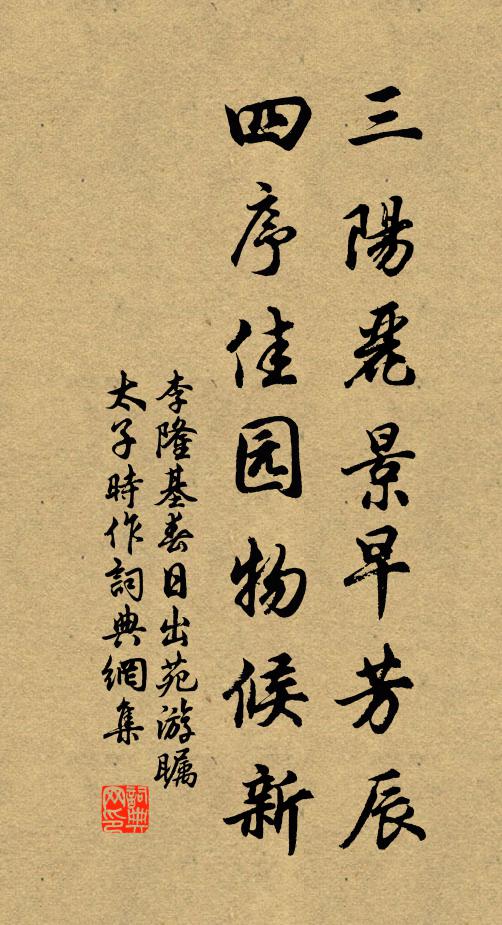 三陽麗景早芳辰
四序佳园物候新
李隆基春日出苑游瞩
太子時作詞典網集
詞典网印